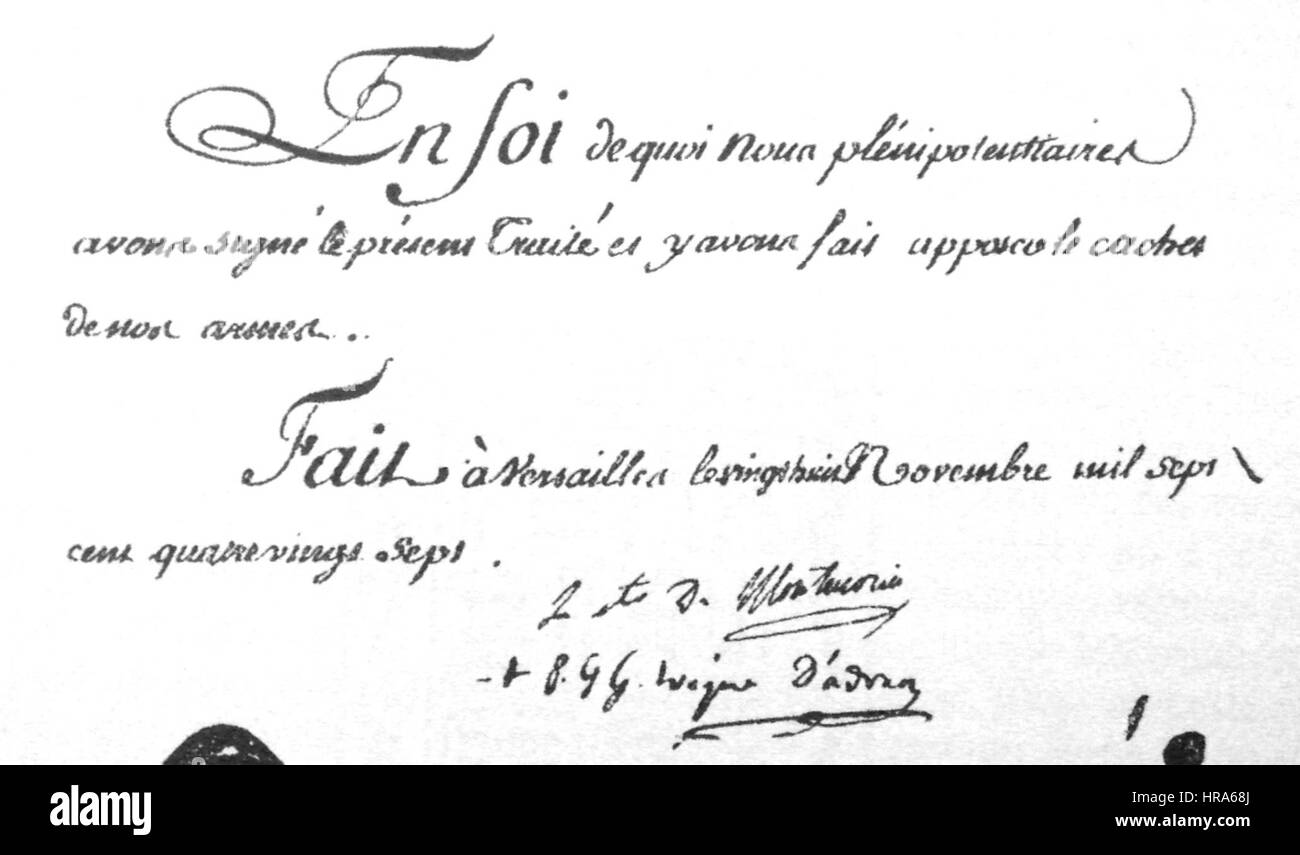 En foi de quoi nous plénipotentiaires
avons signé le présent Traité et y avons fait apposer le cachet
de nos armes.
Fait à Versailles le vingt huit Novembre mil sept
cent quatrevingt sept.
De Montmorin
+ P. G G. evêque D'adran
alamy
Image ID: HRA68J
www.alamy.com